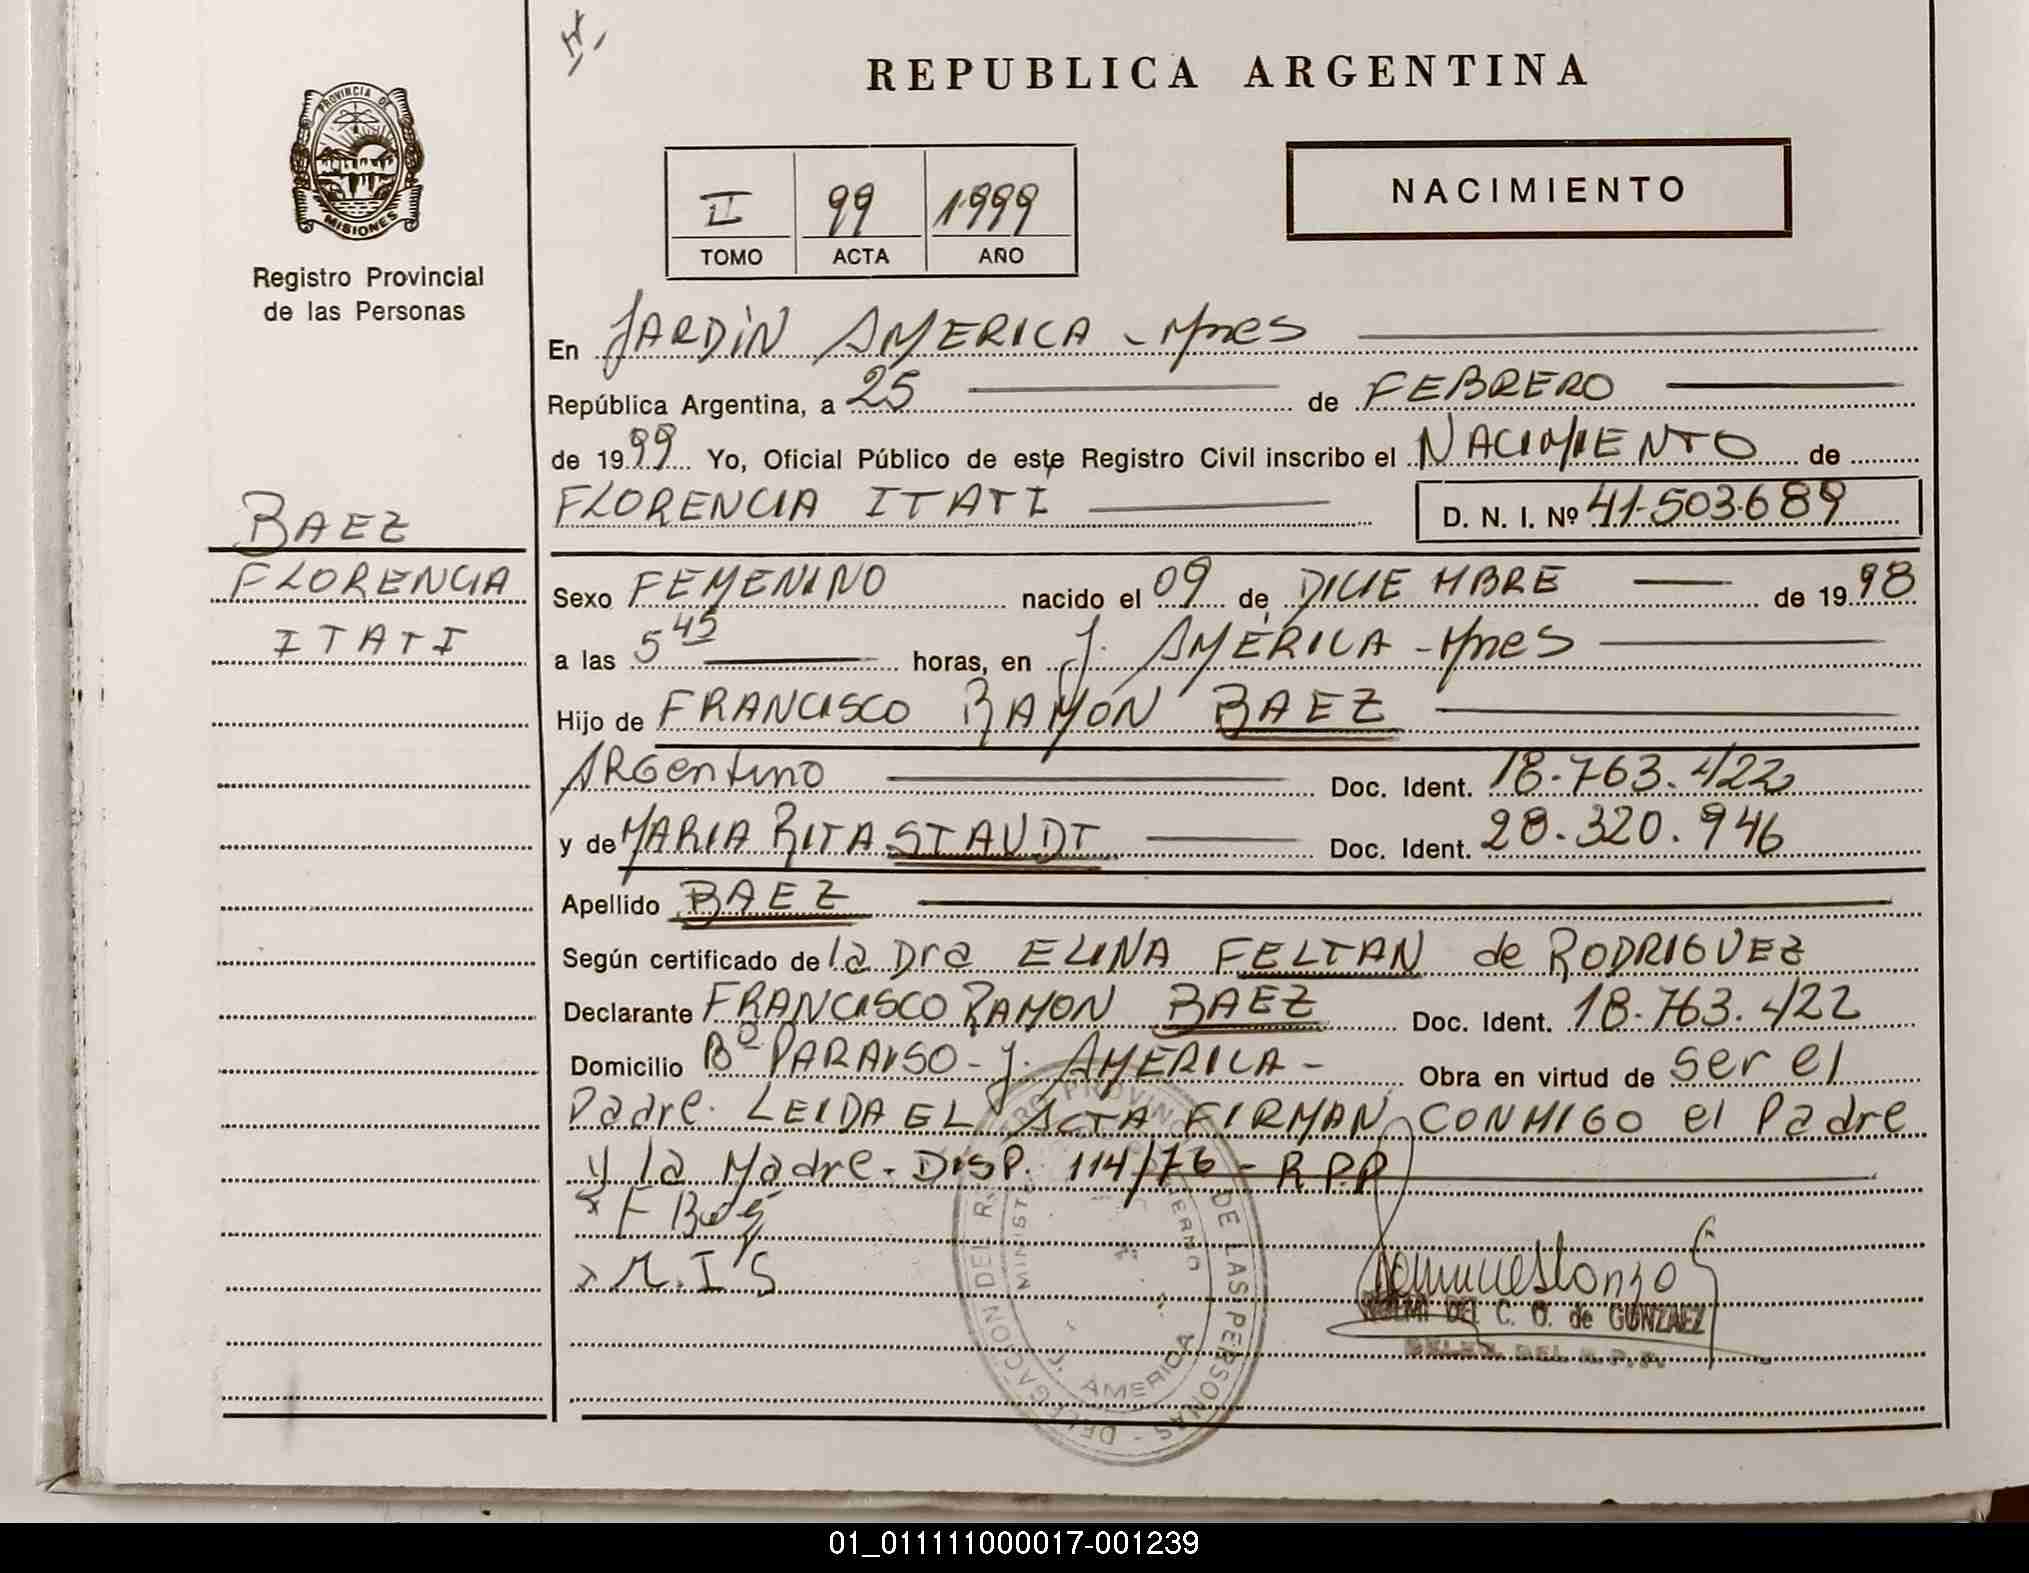 REPUBLICA ARGENTINA
PROVINCIA DE
MISIONES
Registro Provincial
de las Personas
NACIMIENTO
II 99 1999
TOMO ACTA AÑO
En JARDIN AMERICA - Mnes
República Argentina, a 25 de FEBRERO
de 1999 Yo, Oficial Público de este Registro Civil inscribo el NACIMIENTO de
FLORENCIA ITATI D. N. I. Nº 41.503.689
BAEZ
FLORENCIA
ITATI
Sexo FEMENINO nacido el 09 de DICIEMBRE de 1998
a las 5 45 horas, en J. AMERICA - Mnes
Hijo de FRANCISCO RAMON BAEZ
ARGentino Doc. Ident. 18.763.422
y de MARIA RITA STAUDT Doc. Ident. 28.320.946
Apellido BAEZ
Según certificado de la Dra ELINA FELTAN de RODRIGUEZ
Declarante FRANCISCO RAMON BAEZ Doc. Ident. 18.763.422
Domicilio Bº PARAISO - J. AMERICA - Obra en virtud de ser el
Padre. LEIDA EL ACTA FIRMAN CONMIGO el Padre
y la Madre. DISP. 114/76 - R.P.P
x F Baez
x M. I S
DEL C. O. de GONZALEZ
DEL R.P.P.
DELEGACION DEL PROVINC DE LAS PERSONAS
MINIST
J. AMERICA
01_011111000017-001239